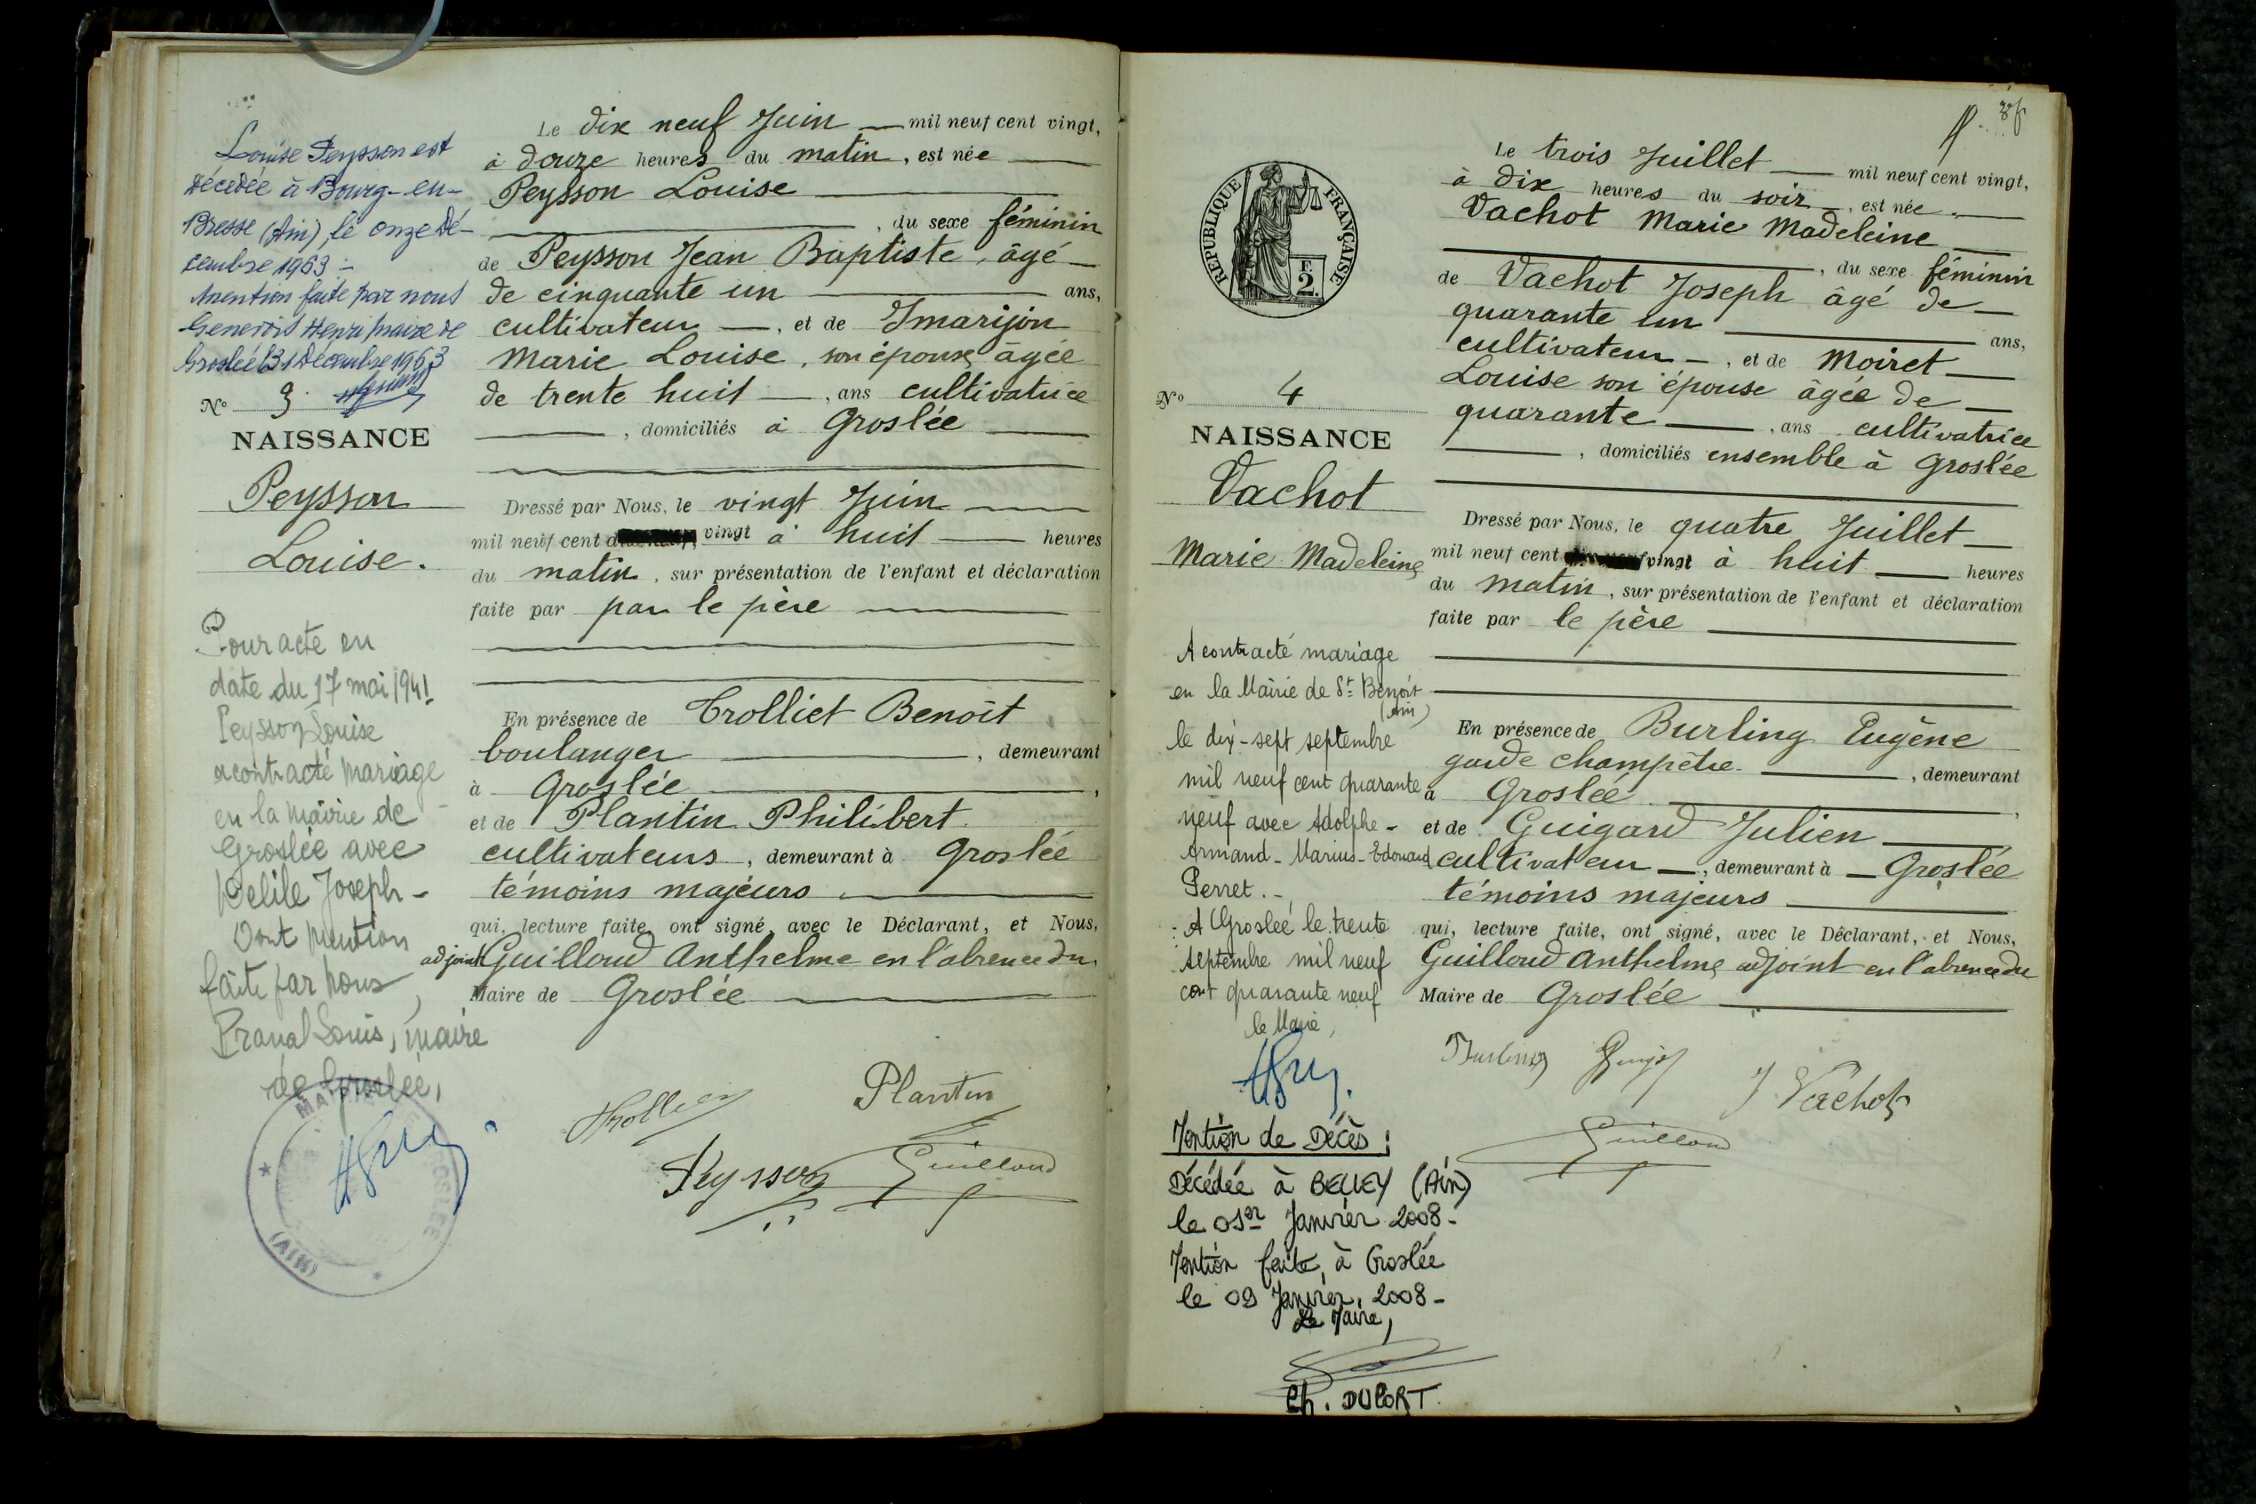 Louise Peysson est
décédée à Bourg-en-
Bresse (Ain), le onze Dé-
cembre 1963 -
Mention faite par nous
Henri Maire de
Groslée 31 Décembre 1963
N° 3
NAISSANCE
Peysson
Louise.
Pour acte en
date du 17 mai 1941
Peysson Louise
a contracté mariage
en la mairie de
Groslée avec
Joseph -
Dont mention
faite par nous,
Louis, maire
de Groslée,
MAIRIE DE GROSLÉE
(AIN)
Le dix neuf Juin — mil neuf cent vingt,
à douze heures du matin, est née
Peysson Louise
, du sexe féminin
de Peysson Jean Baptiste, âgé
de cinquante un ans,
cultivateur —, et de Jmarijon
Marie Louise, son épouse, âgée
de trente huit —, ans cultivatrice
, domiciliés à Groslée
Dressé par Nous, le vingt Juin
mil neuf cent vingt à huit heures
du matin, sur présentation de l'enfant et déclaration
faite par par le père
En présence de Trolliet Benoît
boulanger , demeurant
à Groslée ,
et de Plantin Philibert
cultivateurs, demeurant à Groslée
témoins majeurs
qui, lecture faite, ont signé, avec le Déclarant, et Nous,
adjoint Guilloud Anthelme en l'absence du
Maire de Groslée
Trolliet
Plantin
Peysson
Guilloud
RÉPUBLIQUE FRANÇAISE
F.
2.
N° 4
NAISSANCE
Vachot
Marie Madeleine
A contracté mariage
en la Mairie de St Benoît
(Ain)
le dix-sept septembre
mil neuf cent quarante
neuf avec Adolphe -
Armand - Marius - Edouard
Perret. -
A Groslée le trente
septembre mil neuf
cent quarante neuf
le Maire,
Mention de Décès :
Décédée à BELLEY (Ain)
le 01er Janvier 2008 -
Mention faite, à Groslée
le 09 Janvier 2008 -
Le Maire,
Ch. DUPORT.
Le trois Juillet — mil neuf cent vingt,
à dix heures du soir —, est née
Vachot Marie Madeleine
, du sexe féminin
de Vachot Joseph âgé de
quarante un ans,
cultivateur —, et de Moiret
Louise son épouse âgée de
quarante —, ans cultivatrice
, domiciliés ensemble à Groslée
Dressé par Nous, le quatre Juillet
mil neuf cent vingt à huit heures
du matin, sur présentation de l'enfant et déclaration
faite par le père
En présence de Burling Eugène
garde champêtre , demeurant
à Groslée ,
et de Guigard Julien
cultivateur —, demeurant à — Groslée
témoins majeurs
qui, lecture faite, ont signé, avec le Déclarant, et Nous,
Guilloud Anthelme adjoint en l'absence du
Maire de Groslée
Burling
J Vachot
Guilloud